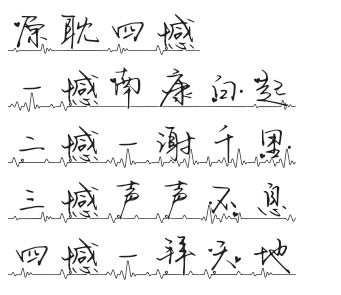 原耽四憾
一憾南康白起
二憾一谢千里
三憾声声不息
四憾一拜天地